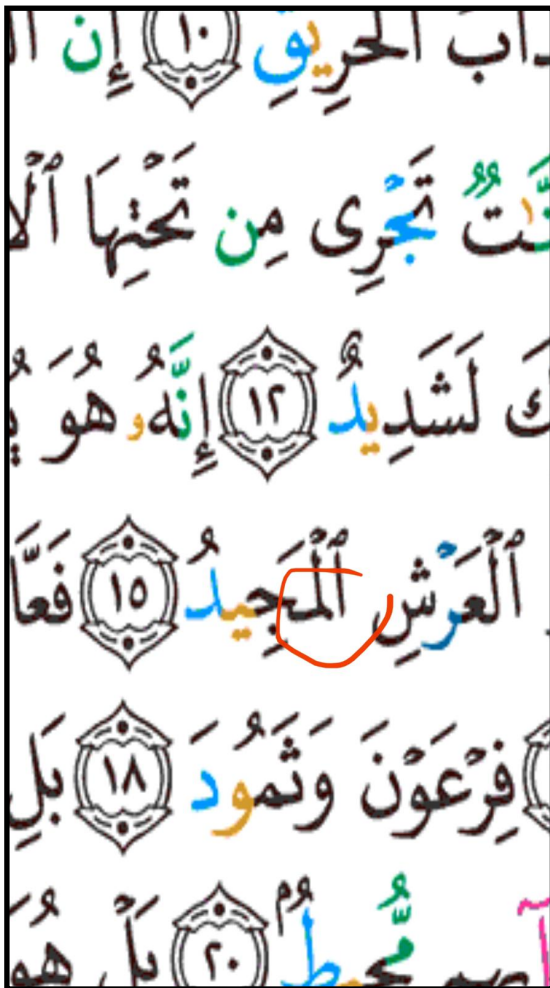 ـذَابُ ٱلۡحَرِيقِ ١٠ إِنَّ ٱ
ـنَّٰتٞ تَجۡرِي مِن تَحۡتِهَا ٱلۡأ
كَ لَشَدِيدٌ ١٢ إِنَّهُۥ هُوَ يُ
ٱلۡعَرۡشِ ٱلۡمَجِيدُ ١٥ فَعَّا
فِرۡعَوۡنَ وَثَمُودَ ١٨ بَلِ
مُّحِيطُۢ ٢٠ بَلۡ هُوَ